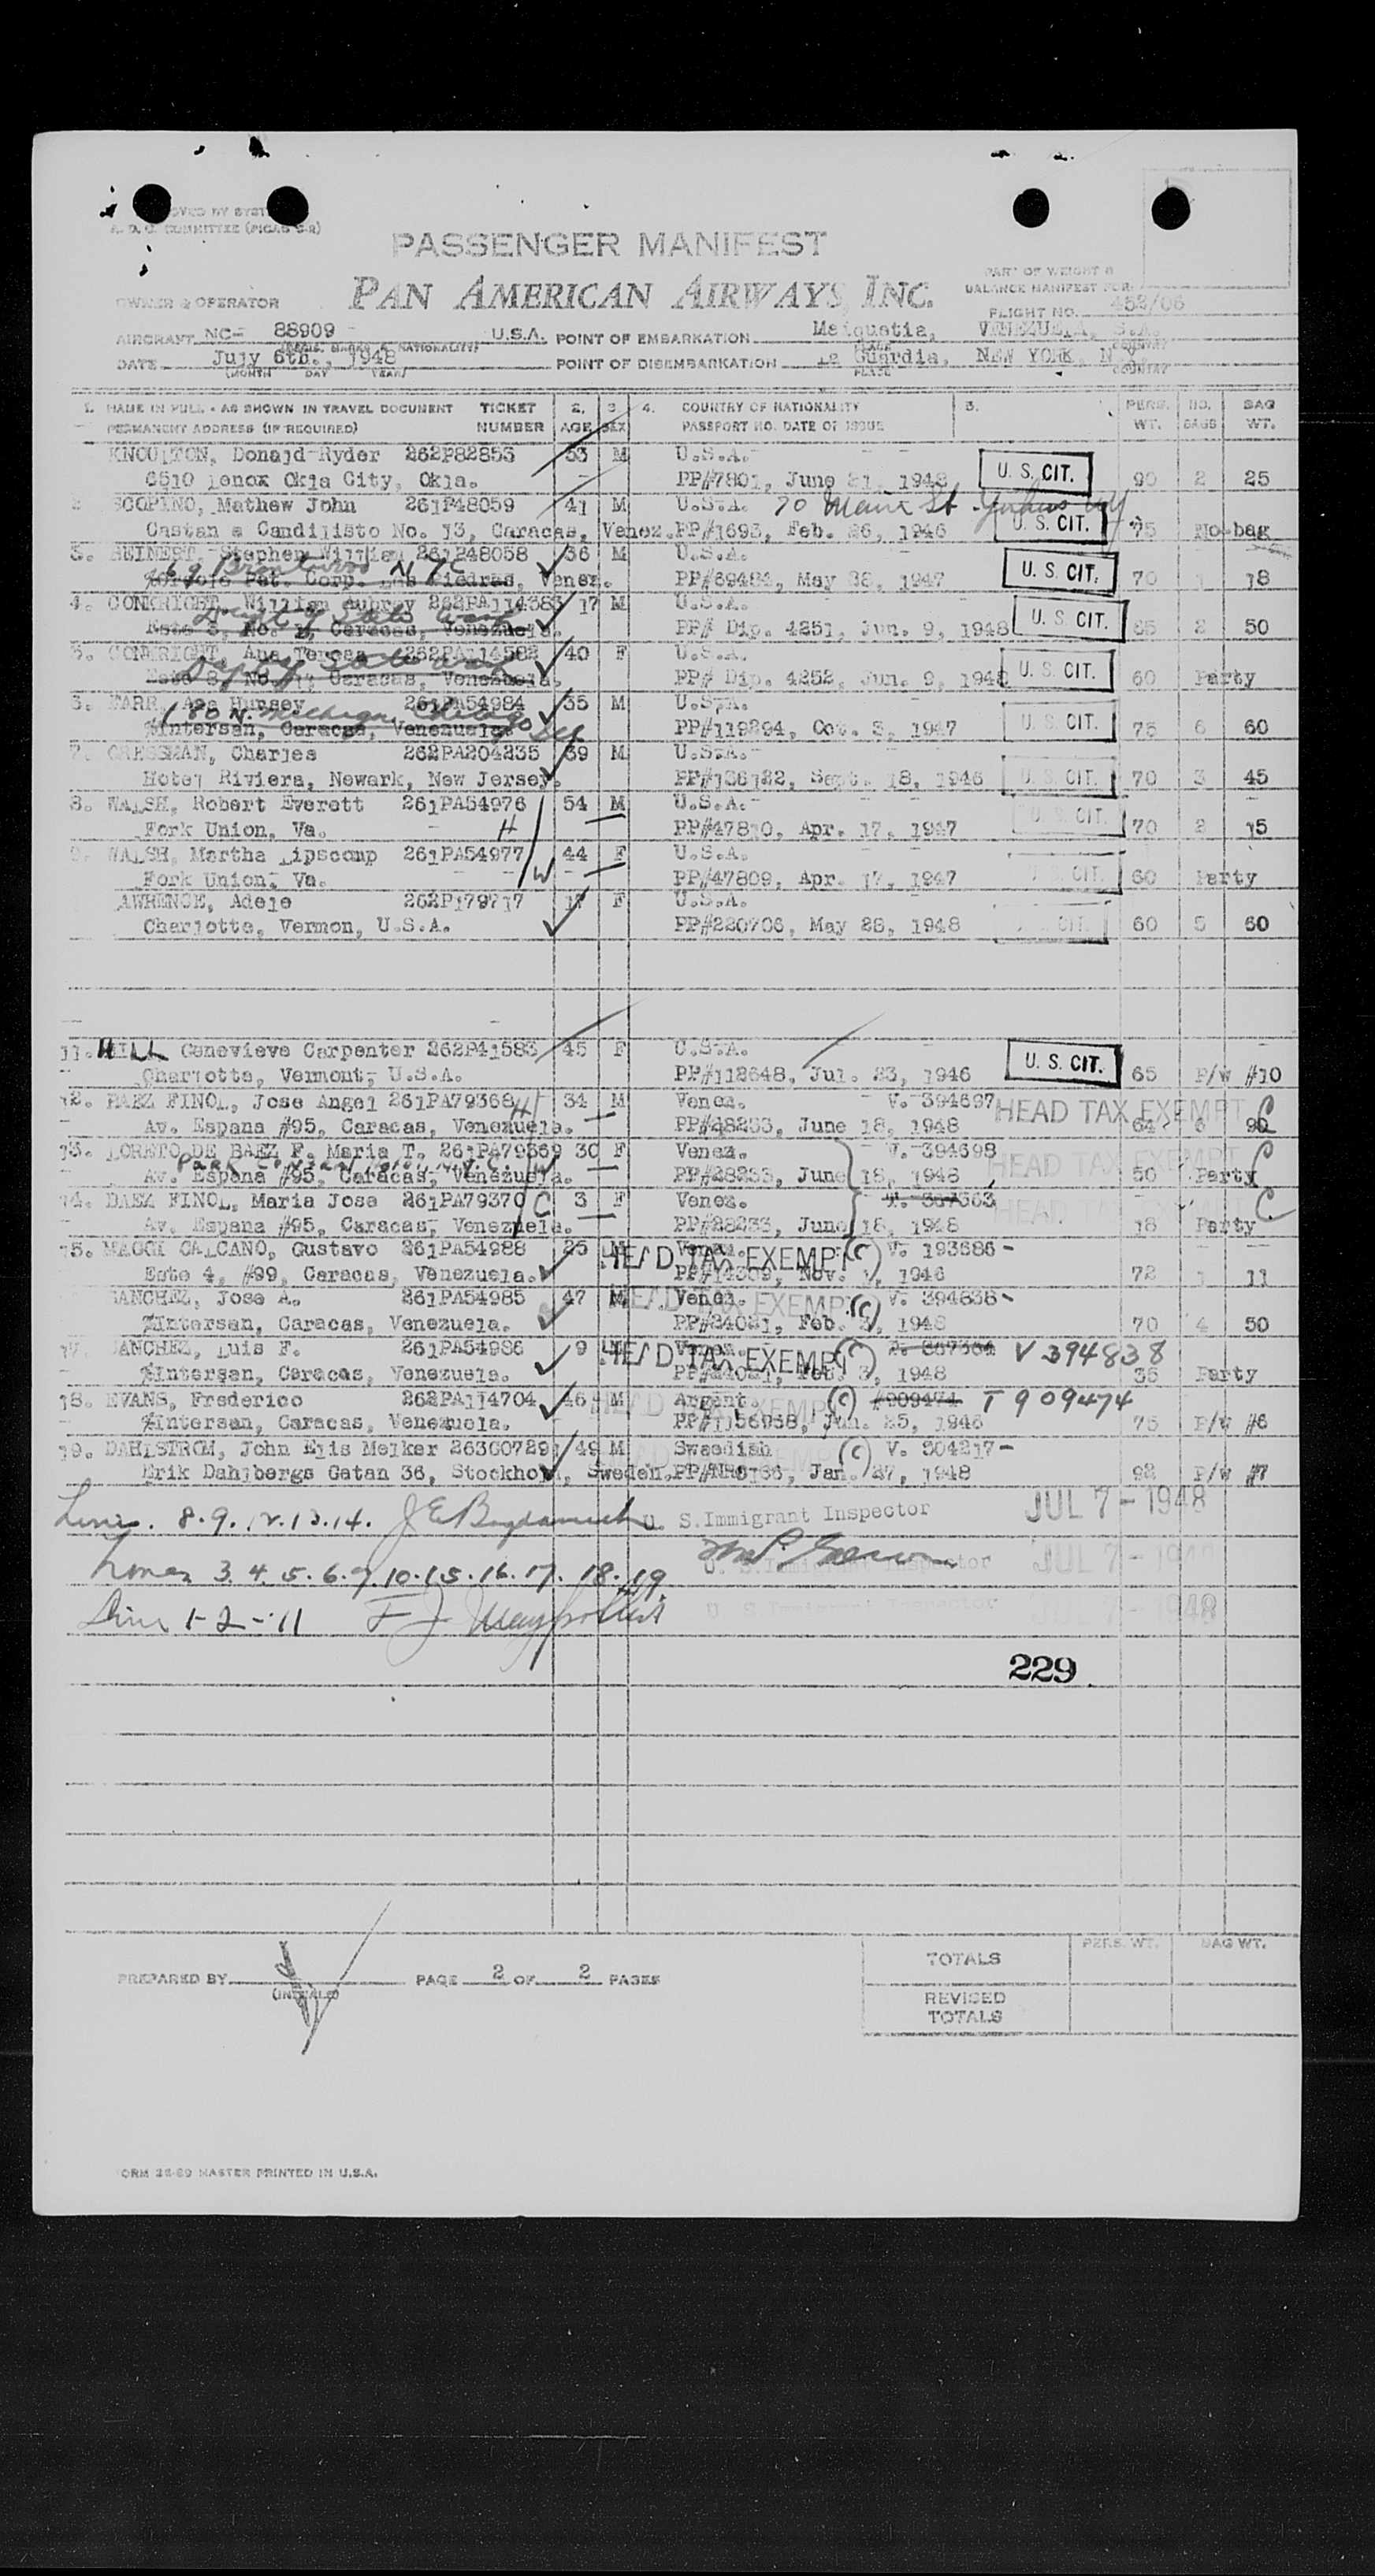 PASSENGER MANIFEST
PAN AMERICAN AIRWAYS, INC.
PART OF WEIGHT &
BALANCE MANIFEST FOR:
OWNER & OPERATOR
FLIGHT NO. 452/06
AIRCRAFT NC- 88909 U.S.A. POINT OF EMBARKATION Maiquetia, VENEZUELA, S.A.
DATE July 6th., 1948 POINT OF DISEMBARKATION La Guardia, NEW YORK, N.Y.
(MONTH DAY YEAR) PLACE COUNTRY
1. NAME IN FULL - AS SHOWN IN TRAVEL DOCUMENT TICKET 2. 3. 4. COUNTRY OF NATIONALITY 5. PERS. NO. BAG
PERMANENT ADDRESS (IF REQUIRED) NUMBER AGE SEX PASSPORT NO. DATE OF ISSUE WT. BAGS WT.
KNOULTON, Donald Ryder 262P82853 53 M U.S.A.
6510 Lenox Okla City, Okla. PP#7801, June 21, 1948 U. S. CIT. 90 2 25
2 SCOPINO, Mathew John 261P48059 41 M U.S.A. 70 Main St
Castan a Candilisto No. 13, Caracas, Venez. PP#1693, Feb. 26, 1946 U. S. CIT. 75 No bag
3. Stephen William 261P48058 36 M U.S.A.
Pet. Corp. Las Piedras, Venez. PP#69484, May 28, 1947 U. S. CIT. 70 1 18
4. CONKRIGHT, William Aubrey 262PA114383 17 M U.S.A.
Dept of State Wash
Este 8, No. Caracas, Venezuela. PP# Dip. 4251, Jun. 9, 1948 U. S. CIT. 65 2 50
5. CONKRIGHT, Ana Teresa 262PA114582 40 F U.S.A.
Dept of State Wash
Este 8, No. Caracas, Venezuela. PP# Dip. 4252, Jun. 9, 1948 U. S. CIT. 60 Party
6. FARR, Asa Hursey 261PA54984 35 M U.S.A.
180 N. Michigan Chicago Ill
%Intersan, Caracas, Venezuela PP#119294, Oct. 3, 1947 U. S. CIT. 75 6 60
7. Charles 262PA204235 39 M U.S.A.
Hotel Riviera, Newark, New Jersey. PP#136122, Sept. 18, 1946 U. S. CIT. 70 3 45
8. WALSH, Robert Everett 261PA54976 54 M U.S.A.
Fork Union, Va. H PP#47810, Apr. 17, 1947 U. S. CIT. 70 2 15
9. WALSH, Martha Lipscomp 261PA54977 44 F U.S.A.
Fork Union, Va. W PP#47809, Apr. 17, 1947 CIT. 60 Party
LAWRENCE, Adele 262P179717 17 F U.S.A.
Charlotte, Vermon, U.S.A. PP#220706, May 28, 1948 CIT. 60 5 60
11. HILL Genevieve Carpenter 262P41583 45 F U.S.A.
Charlotte, Vermont, U.S.A. PP#112648, Jul. 23, 1946 U. S. CIT. 65 P/w #10
12. BAEZ FINOL, Jose Angel 261PA79368 H 34 M Venez. V. 394697 HEAD TAX EXEMPT C
Av. Espana #95, Caracas, Venezuela. PP#28233, June 18, 1948 64 6 90
13. LORETO DE BAEZ F. Maria T. 261PA79369 30 F Venez. V. 394698 HEAD TAX EXEMPT C
Av. Espana #95, Caracas, Venezuela. W PP#28233, June 18, 1948 50 Party
14. BAEZ FINOL, Maria Jose 261PA79370 C 3 F Venez. HEAD TAX EXEMPT C
Av. Espana #95, Caracas, Venezuela. PP#28233, June 18, 1948 18 Party
15. MAGGI CALCANO, Gustavo 261PA54988 25 M Venez. HEAD TAX EXEMPT (C) V. 193686 -
Este 4, #99, Caracas, Venezuela. PP#14309, Nov. 1, 1946 72 1 11
SANCHEZ, Jose A. 261PA54985 47 M Venez. HEAD TAX EXEMPT (C) V. 394838 -
%Intersan, Caracas, Venezuela. PP#24021, Feb. 3, 1948 70 4 50
17. SANCHEZ, Luis F. 261PA54986 9 M Venez. HEAD TAX EXEMPT (C) V 394838
%Intersan, Caracas, Venezuela. PP#24021, Feb. 3, 1948 35 Party
18. EVANS, Frederico 262PA114704 46 M Argent. (C) #909474 T 909474
%Intersan, Caracas, Venezuela. PP#1156958, Jun. 25, 1946 75 P/w #6
19. DAHLSTROM, John Elis Melker 263G0729 49 M Sweedish (C) V. 504217 -
Erik Dahlbergs Gatan 36, Stockholm, Sweden. Jan. 27, 1948 92 P/w #7
Lines. 8. 9. 12. 13. 14. U. S. Immigrant Inspector JUL 7 - 1948
Lines 3. 4. 5. 6. 7. 10. 15. 16. 17. 18. 19. U. S. Immigrant Inspector JUL 7 - 1948
Lines 1-2-11 U. S. Immigrant Inspector JUL 7 - 1948
229
PREPARED BY PAGE 2 OF 2 PAGES
(INITIALS)
PERS. WT. BAG WT.
TOTALS
REVISED
TOTALS
FORM 28-60 MASTER PRINTED IN U.S.A.